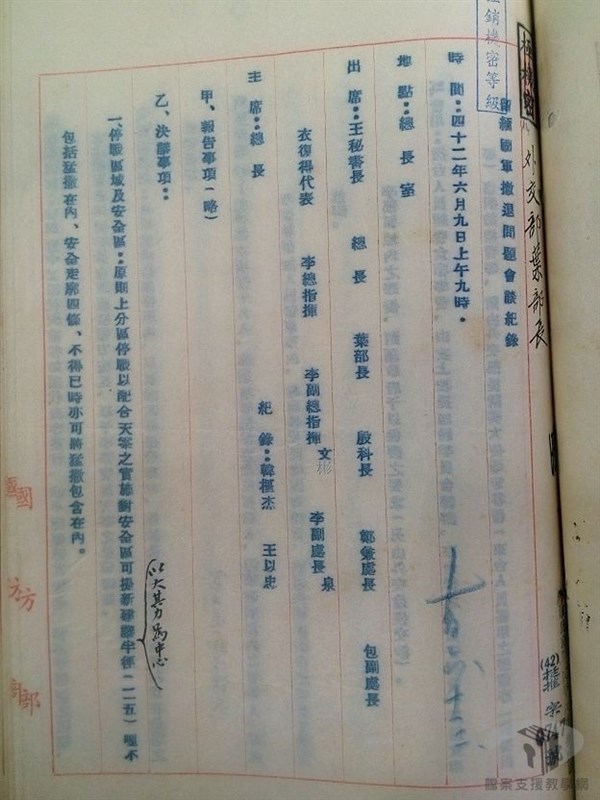 註銷機密等級
極機密
外交部葉部長
國軍撤退問題會談紀錄
時間：四十二年六月九日上午九時。
地點：總長室
出席：王秘書長 總長 葉部長 殷科長 鄭兼處長 包副處長
衣復得代表 李總指揮 李副總指揮文彬 李副處長泉
主席：總長 紀錄：韓極杰 王以忠
甲、報告事項（略）
乙、決議事項：
一、停戰區域及安全區：原則上分區停戰以配合天案之實施對安全區可接 半徑（一一五）哩不
以大其力為中心
包括猛撒在內、安全走廊四條、不得已時亦可將猛撒包含在內。
(42)
國防部
檔案支援教學網